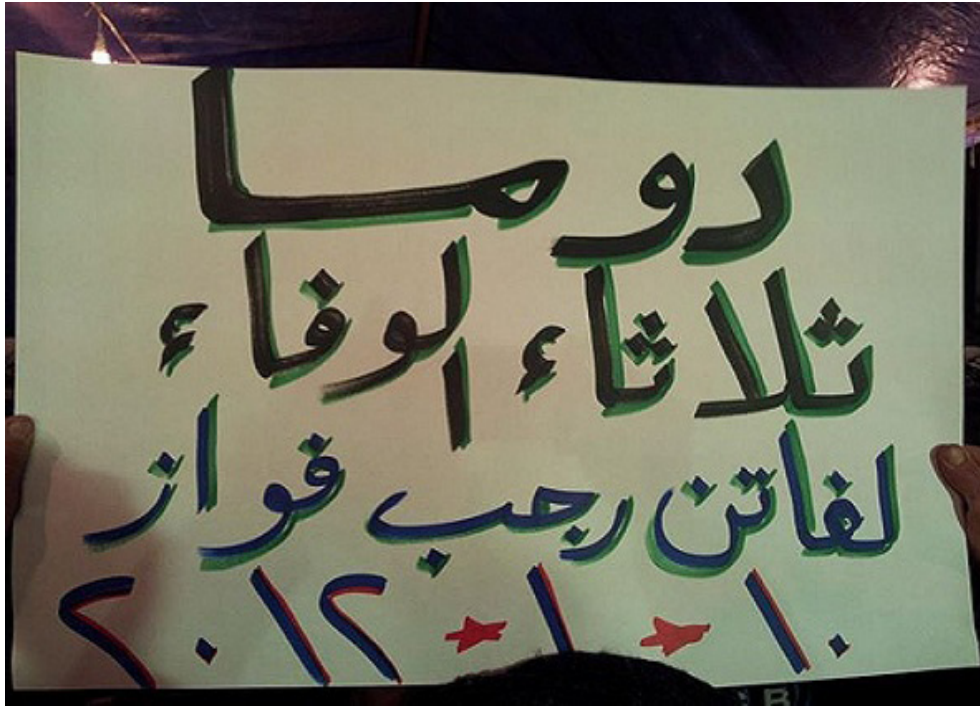 دوما
ثلاثاء الوفاء
لفاتن رجب فواز
١٠ * ١ * ٢٠١٢
B